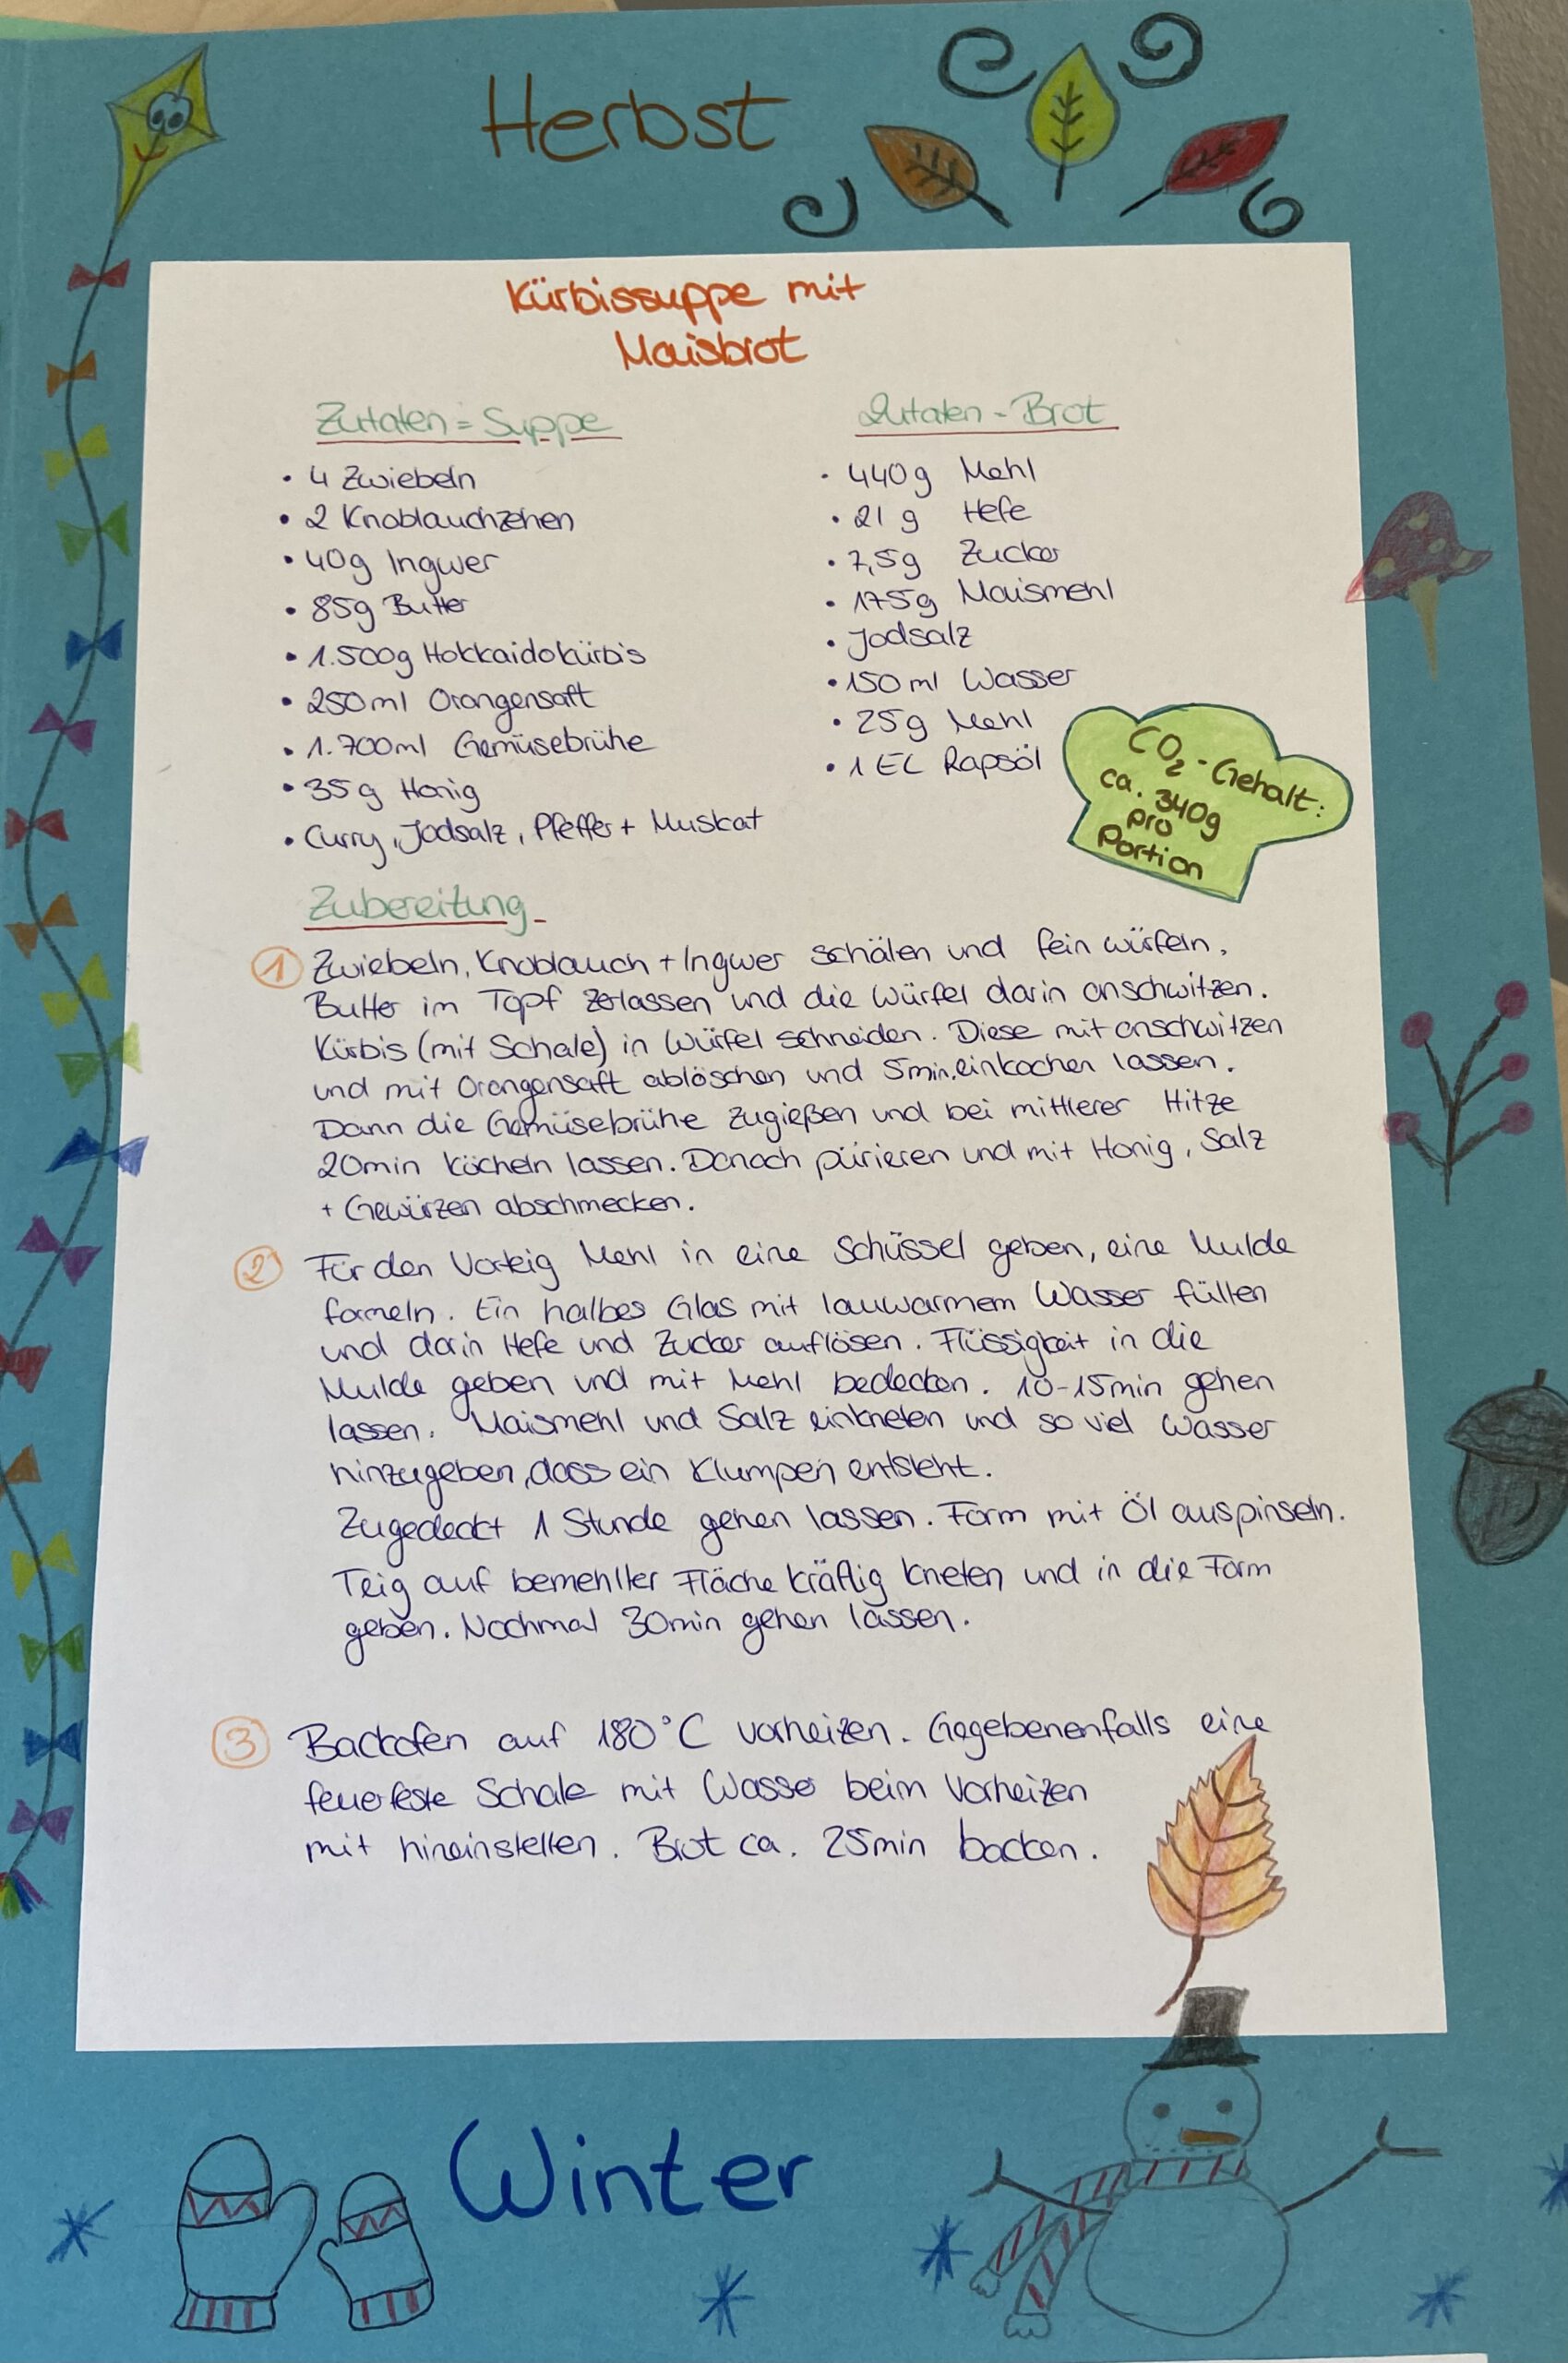 Herbst
Kürbissuppe mit
Maisbrot
Zutaten = Suppe
• 4 Zwiebeln
• 2 Knoblauchzehen
• 40g Ingwer
• 85g Butter
• 1.500g Hokkaidokürbis
• 250ml Orangensaft
• 1.700ml Gemüsebrühe
• 35g Honig
• Curry, Jodsalz, Pfeffer + Muskat
Zutaten - Brot
• 440g Mehl
• 21g Hefe
• 7,5g Zucker
• 175g Maismehl
• Jodsalz
• 150ml Wasser
• 25g Mehl
• 1 EL Rapsöl
CO₂-Gehalt:
ca. 340g
pro
Portion
Zubereitung
① Zwiebeln, Knoblauch + Ingwer schälen und fein würfeln.
Butter im Topf zerlassen und die Würfel darin anschwitzen.
Kürbis (mit Schale) in Würfel schneiden. Diese mit anschwitzen
und mit Orangensaft ablöschen und 5min. einkochen lassen.
Dann die Gemüsebrühe zugießen und bei mittlerer Hitze
20min köcheln lassen. Danach pürieren und mit Honig, Salz
+ Gewürzen abschmecken.
② Für den Vorteig Mehl in eine Schüssel geben, eine Mulde
formeln. Ein halbes Glas mit lauwarmem Wasser füllen
und darin Hefe und Zucker auflösen. Flüssigkeit in die
Mulde geben und mit Mehl bedecken. 10-15min gehen
lassen. Maismehl und Salz einkneten und so viel Wasser
hinzugeben, dass ein Klumpen entsteht.
Zugedeckt 1 Stunde gehen lassen. Form mit Öl auspinseln.
Teig auf bemehlter Fläche kräftig kneten und in die Form
geben. Nochmal 30min gehen lassen.
③ Backofen auf 180°C vorheizen. Gegebenenfalls eine
feuerfeste Schale mit Wasser beim Vorheizen
mit hineinstellen. Brot ca. 25min backen.
Winter